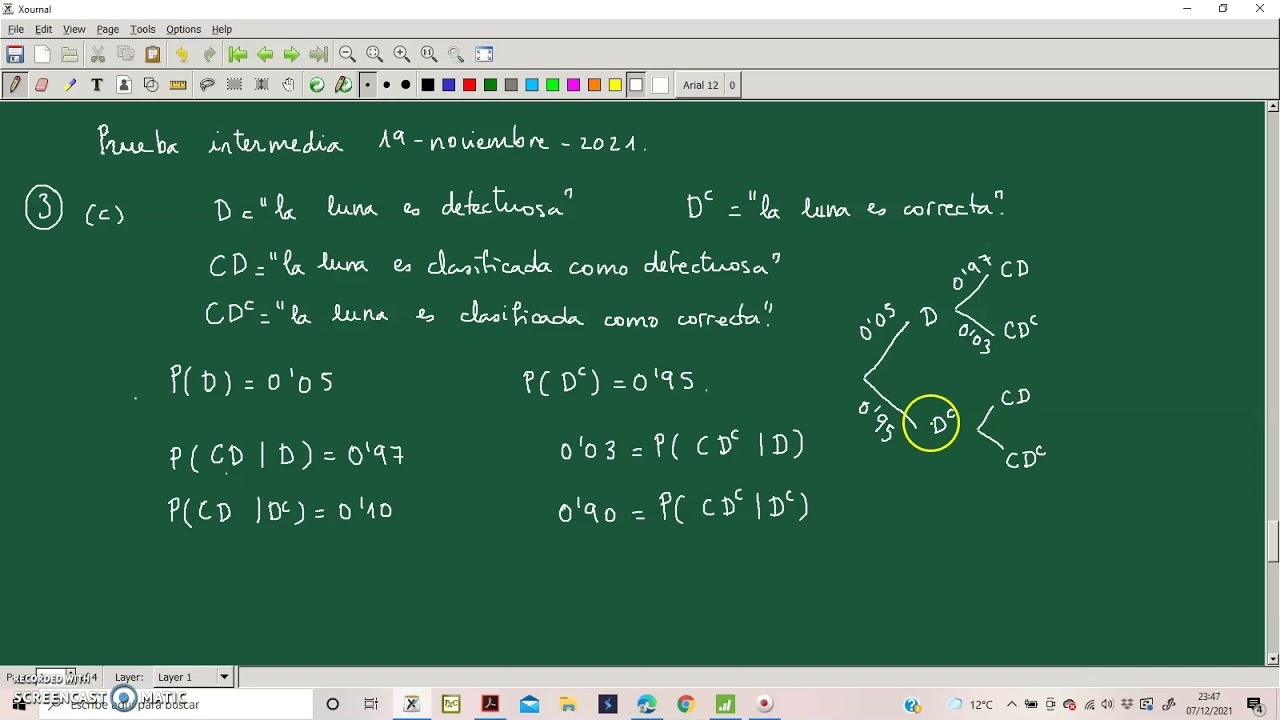 Xournal
File Edit View Page Tools Options Help
Arial 12 0
Prueba intermedia 19-noviembre-2021.
3 (c) D="la luna es defectuosa" Dᶜ="la luna es correcta".
CD="la luna es clasificada como defectuosa"
CDᶜ="la luna es clasificada como correcta".
P(D)=0'05 P(Dᶜ)=0'95.
P(CD|D)=0'97 0'03=P(CDᶜ|D)
P(CD|Dᶜ)=0'10 0'90=P(CDᶜ|Dᶜ)
0'97 CD
0'05 D
0'03 CDᶜ
CD
0'95 Dᶜ
CDᶜ
Layer: Layer 1
RECORDED WITH
SCREENCAST MATIC
aquí para buscar
12°C
23:47
07/12/2021
4